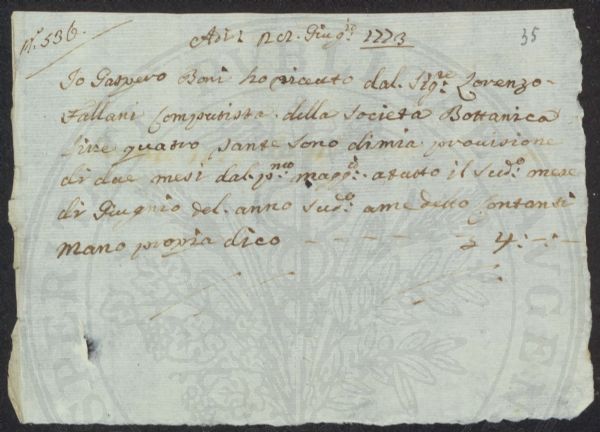 N.º 536. Adi 1 Giug.º 1773 35
Io Gaspero Boni ho riceuto dal. Sig.re Lorenzo
Fallani Computista della Società Bottanica
lire quatro tante sono di mia provisione
di due mesi dal. p.mo magg.o atutto il Sud.o mese
di Giugnio del. anno Sud.o ame detto Contanti
mano propia dico — — — — — 4:-:-